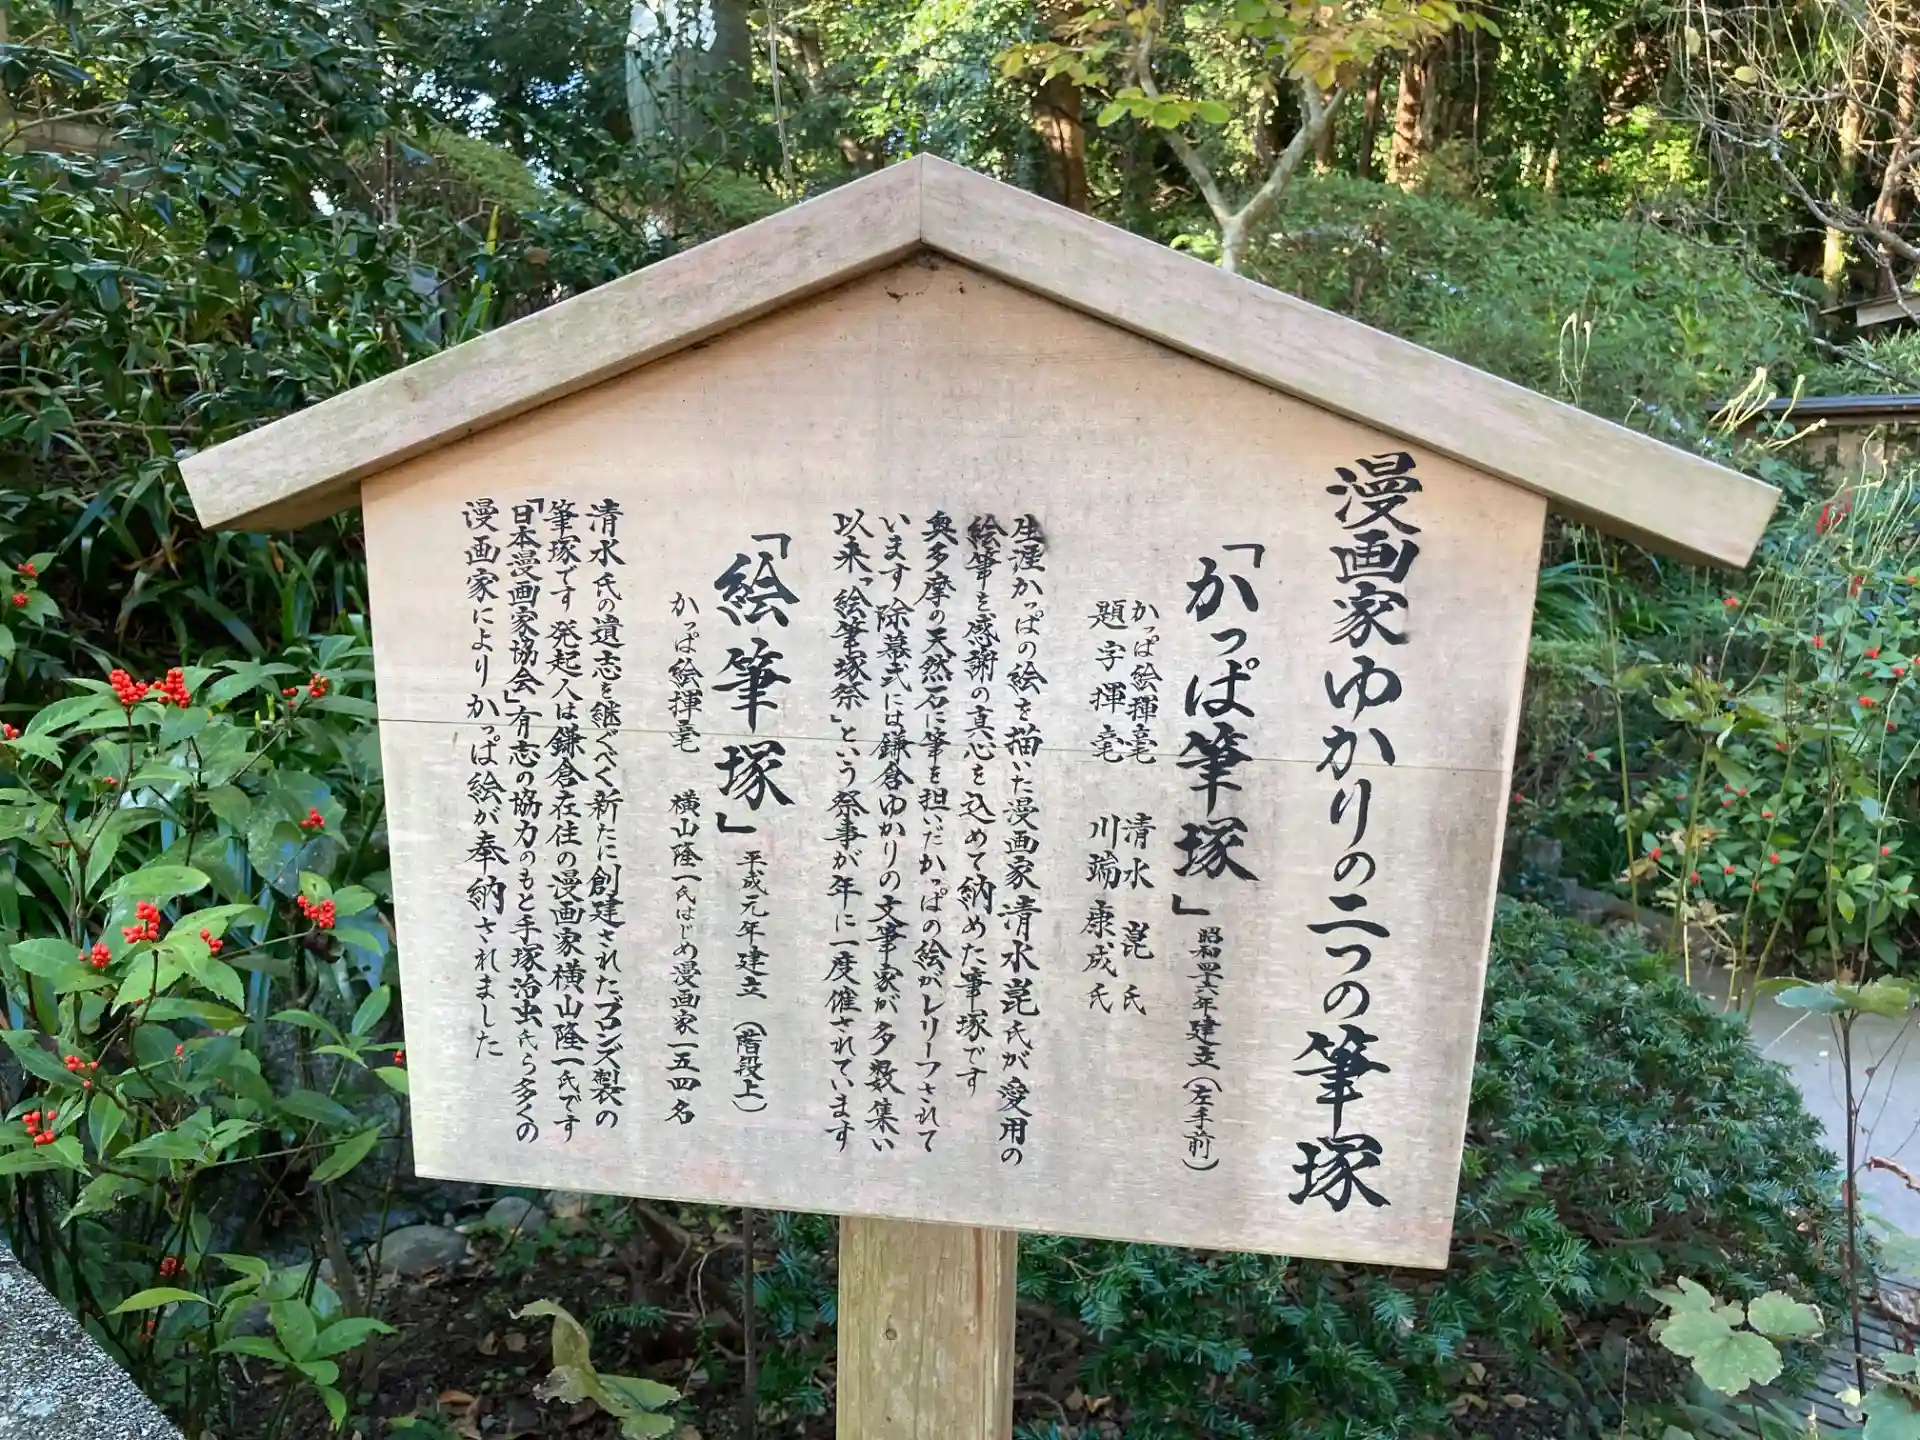 漫画家ゆかりの二つの筆塚
「かっぱ筆塚」昭和四六年建立（左手前）
かっぱ絵揮毫　清水　崑氏
題字揮毫　川端康成氏
生涯かっぱの絵を描いた漫画家清水崑氏が愛用の
絵筆を感謝の真心を込めて納めた筆塚です
奥多摩の天然石に筆を担いだかっぱの絵がレリーフされて
います除幕式には鎌倉ゆかりの文筆家が多数集い
以来「絵筆塚祭」という祭事が年に一度催されています
「絵筆塚」平成元年建立（階段上）
かっぱ絵揮毫　横山隆一氏はじめ漫画家一五四名
清水氏の遺志を継ぐべく新たに創建されたブロンズ製の
筆塚です 発起人は鎌倉在住の漫画家横山隆一氏です
「日本漫画家協会」有志の協力のもと手塚治虫氏ら多くの
漫画家によりかっぱ絵が奉納されました